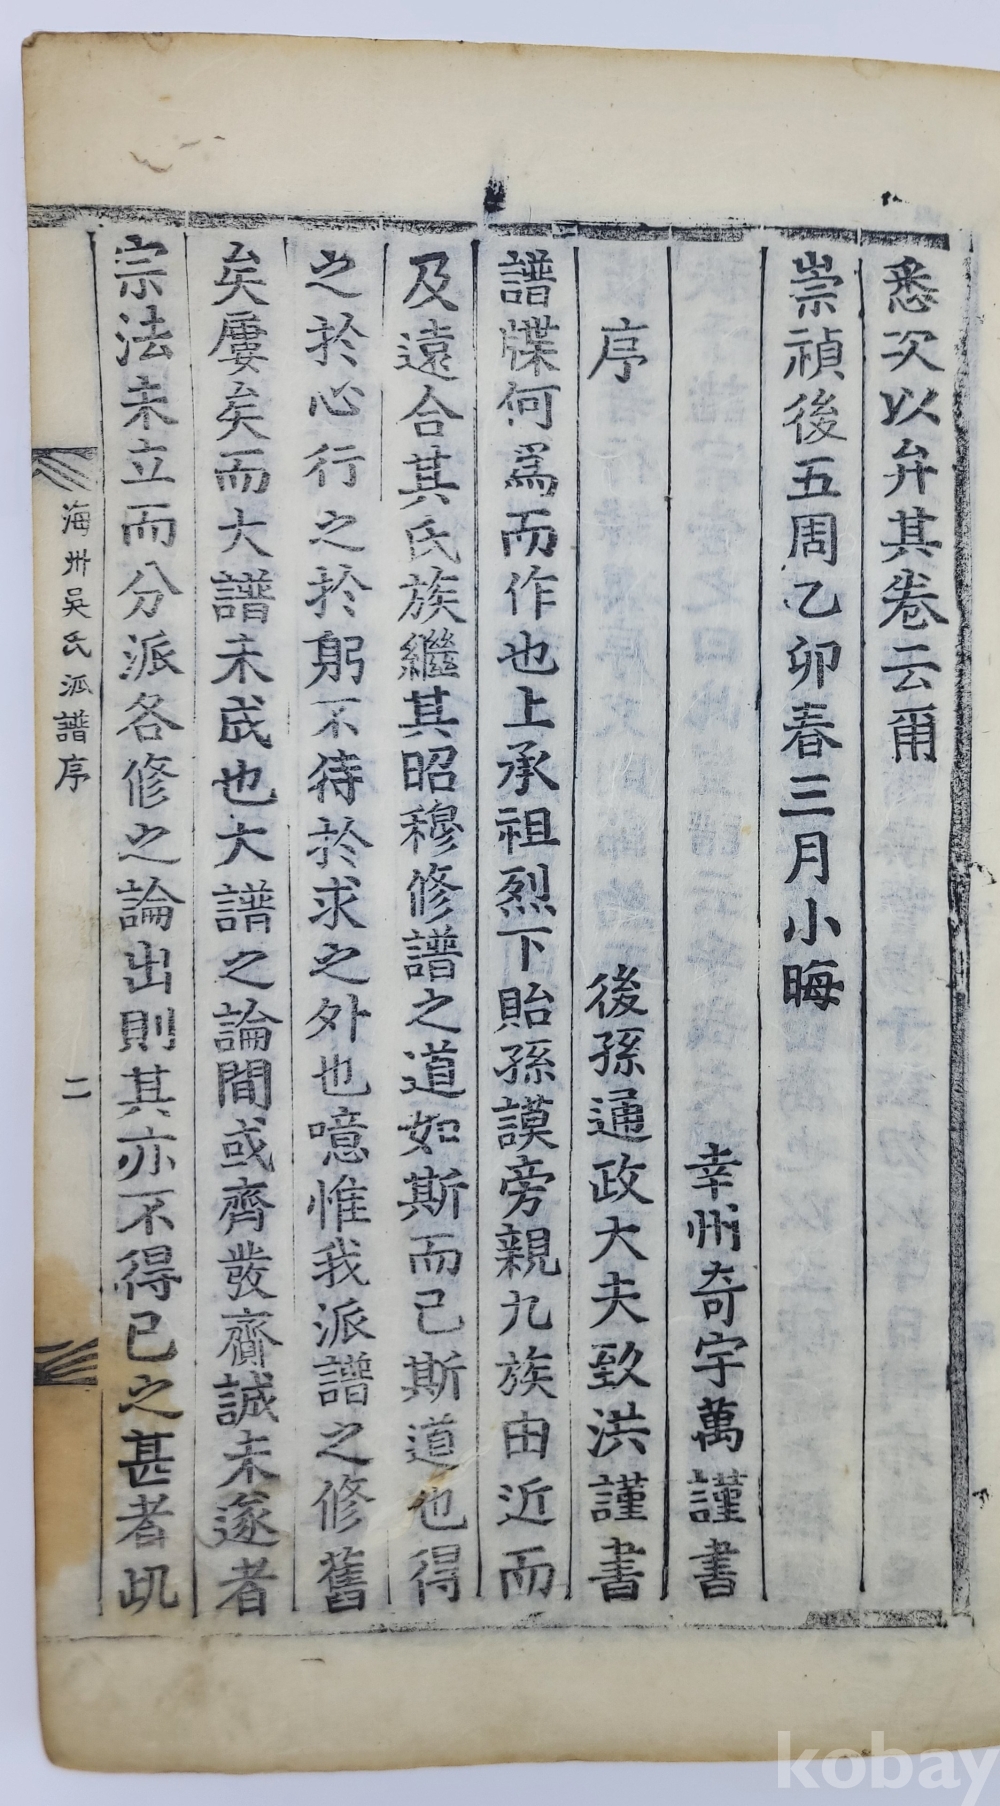 悉次以弁其卷云爾
崇禎後五周乙卯春三月小晦
幸州奇宇萬謹書
序
後孫通政大夫致洪謹書
譜牒何爲而作也上承祖烈下貽孫謨旁親九族由近而
及遠合其氏族繼其昭穆修譜之道如斯而已斯道也得
之於心行之於躬不待於求之外也噫惟我派譜之修舊
矣屢矣而大譜未成也大譜之論間或齊發齎誠未遂者
宗法未立而分派各修之論出則其亦不得已之甚者此
海州吳氏派譜序
二
kobay